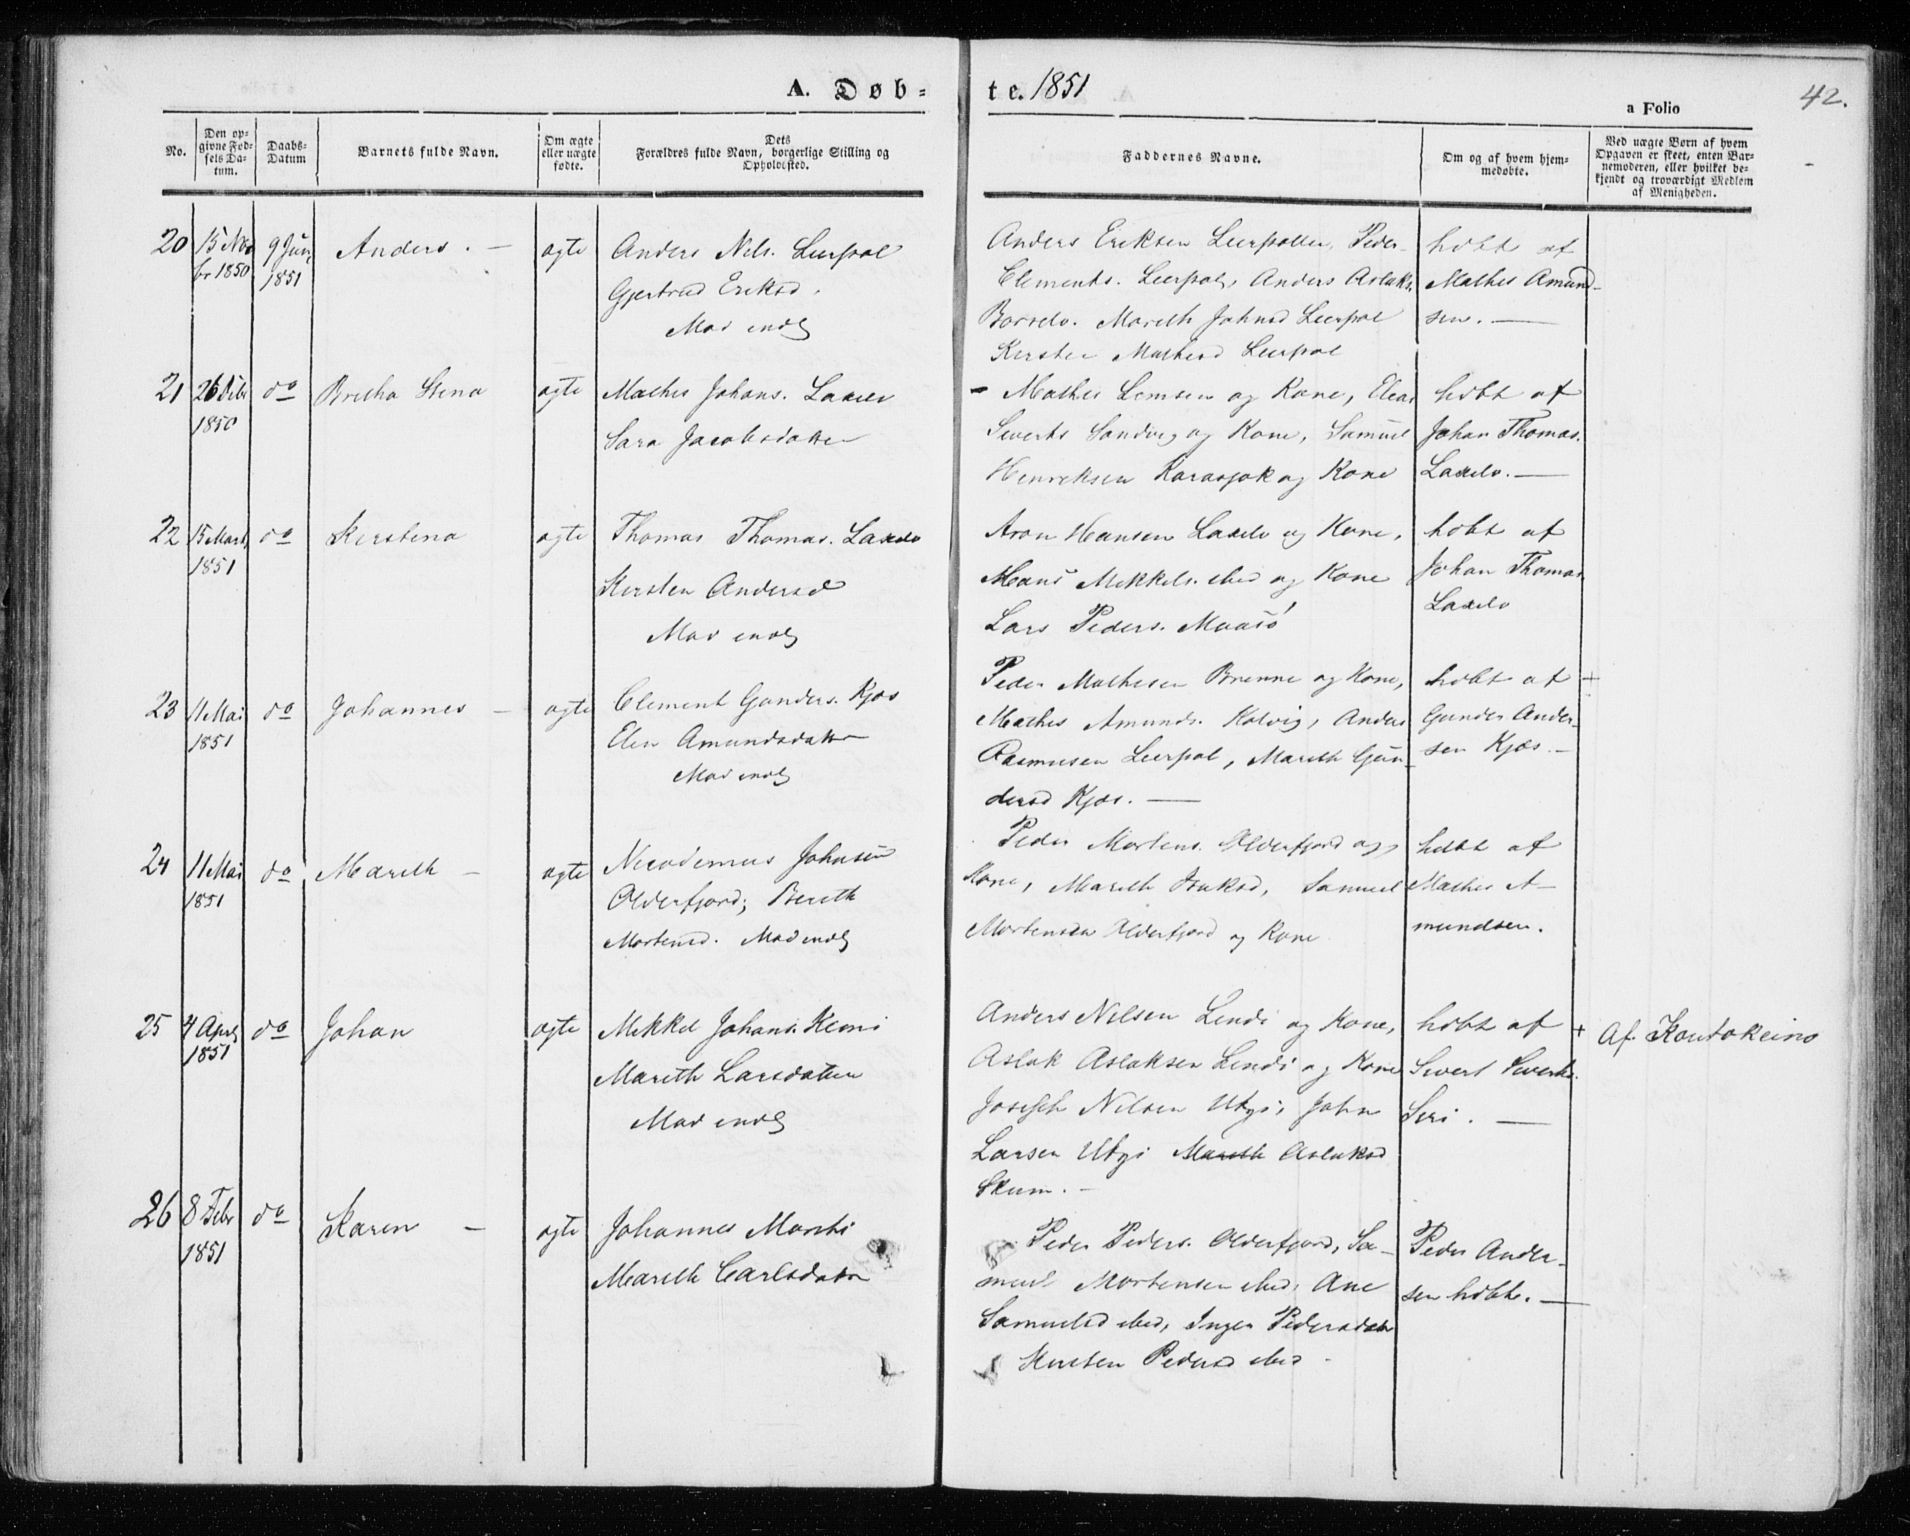 A. Døb=
te. 1851
42.
a Folio
No.
Den op-
givne Fød-
sels Da-
tum.
Daabs-
Datum
Barnets fulde Navn.
Om ægte
eller uægte
fødte.
Dets
Forældres fulde Navn, borgerlige Stilling og
Opholdssted.
Faddernes Navne.
Om og af hvem hjem-
medøbte.
Ved uægte Børn af hvem
Opgaven er skeet, enten Bar-
nemoderen, eller hvilket be-
kjendt og troværdigt Medlem
af Menigheden.
20
15 Nov
br 1850
9 Juni
1851
Anders. —
ægte
Anders Nils. Leerpol
Gjertrud Eriksd.
Mov
Anders Eriksen Leerpollen, Peder
Clements. Leerpol, Anders Aslaks.
Borselv. Mareth Johnsd Leerpol
Kersten Mathesd Leerpol
hdbt af
Mathes Amund-
sen. —
21
26
1850
do
Bretha Stena
ægte
Mathis Johans. Laxelv
Sara Jacobsdatter
- Mathis Lemsen og Kone, Elias
Siverts Sandvig og Kone, Samuel
Henriksen Karasjok og Kone
hdbt af
Johan Thomas.
Laxelv. —
22
15 Marts
1851
do
Kerstena
ægte
Thomas Thomas. Laxelv
Kersten Andersd
Mov
Aron Hansen Laxelv og Kone,
Hans Mikkels. ibid og Kone
Lars Peders. Maasö
hdbt af
Johan Thomas
Laxelv
23
11 Mai
1851
do
Johannes —
ægte
Clement Gunders. Kjæs
Elen Amundsdatter
Mov
Peder Mathesen Brenne og Kone,
Mathis Amunds. Kolvig, Anders
Rasmusen Leerpol, Mareth Gun-
dersd Kjæs. —
hdbt af +
Gunder Ander-
sen Kjæs. —
24
11 Mai
1851
do
Mareth —
ægte
Nicodemus Johnsen
Olderfjord; Bereth
Mortensd. Mov
Peder Mortens. Olderfjord og
Kone, Mareth Isaksd, Samuel
Mortensen Olderfjord og Kone
hdbt af
Mathis A-
mundsen.
25
4 April
1851
do
Johan
ægte
Mikkel Johans. Kemi
Mareth Larsdatter
Mov
Anders Nilsen Lendi og Kone,
Aslak Aslaksen Lendi og Kone
Joseph Nilsen Utsi, John
Larsen Utsi Mareth Aslaksd
Skum. —
hdbt af +
Sivert Siverts.
Siri. —
Af. Koutokeino
26
8 Febr
1851
do
Karen —
ægte
Johannes Morsti
Mareth Carlsdatter
Peder Peders. Olderfjord, Sa-
muel Mortensen ibid, Ane
Samuelsd ibid, Inger Pedersdatr
Kirsten Pedersd ibid.
Peder Ander-
sen hdbt. —